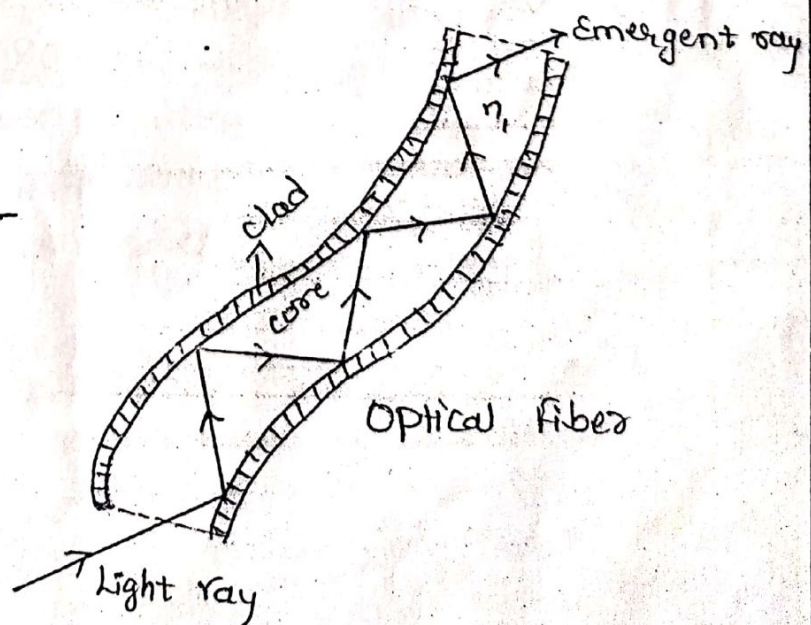 Emergent ray
η₁
clad
core
Optical Fiber
Light ray